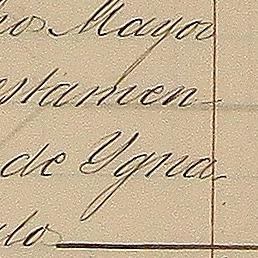 hos Mayor
estamen-
de Ygna
ulo